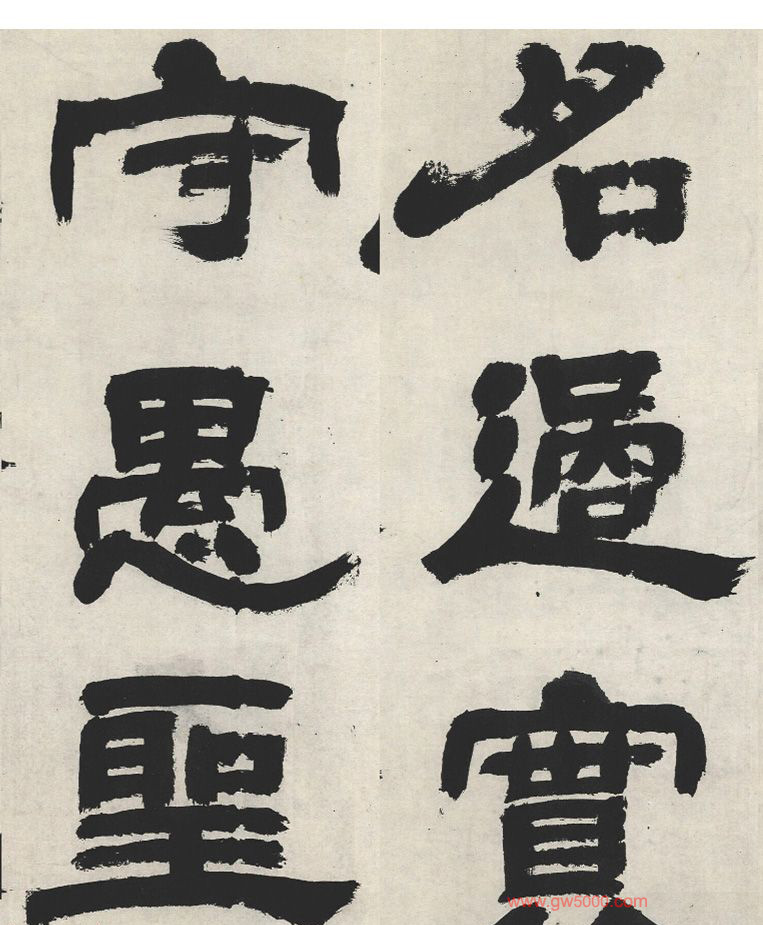 名過實
守愚聖
www.gw5000.com